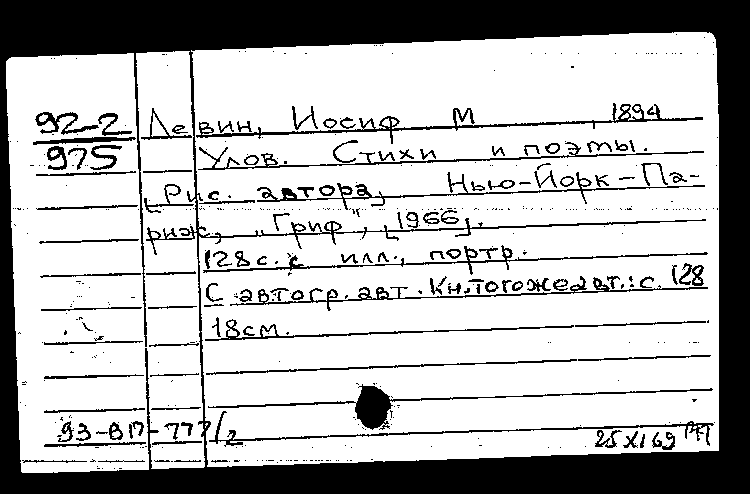 92-2 Левин, Иосиф М , 1894
975 Улов. Стихи и поэмы.
[Рис. автора] Нью-Йорк-Па-
риж, "Гриф", [1966].
128 с. с илл., портр.
С автогр. авт. Кн. того же авт.: с. 128
18 см.
93-ВП-777/2
25 XI 69